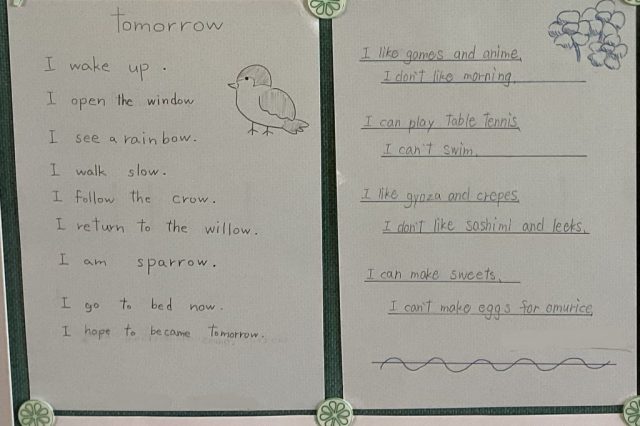 tomorrow
I wake up.
I open the window
I see a rainbow.
I walk slow.
I follow the crow.
I return to the willow.
I am sparrow.
I go to bed now.
I hope to became tomorrow.
I like games and anime.
I don't like morning.
I can play table tennis.
I can't swim.
I like gyoza and crepes.
I don't like sashimi and leeks.
I can make sweets.
I can't make eggs for omurice.